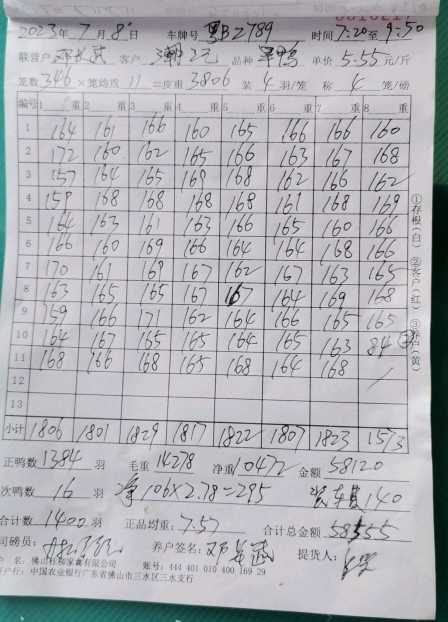 2023年7月8日 车牌号 粤B2789 时间7:20至9:50
联营户 客户 潮 品种 单价 5.55元/斤
笼数 346 ×笼均攻 11 =皮重 3806 装 4 羽/笼 称 4 笼/磅
编号 1 重 2 重 3 重 4 重 5 重 6 重 7 重 8 重
1 164 161 166 160 165 166 166 160
2 172 160 162 165 166 163 167 168
3 157 164 165 169 168 162 166 162
4 159 168 168 168 168 161 168 169
5 164 163 161 163 166 165 160 166
6 166 160 169 166 164 164 168 166
7 170 161 169 167 162 167 163 165
8 163 165 165 167 167 164 169 168
9 159 166 171 162 164 166 165 165
10 164 167 165 165 164 165 163 84
11 168 166 168 165 168 164 168
12
13
小计 1806 1801 1829 1817 1822 1807 1823 1573
正鸭数 1384 羽 毛重 14278 净重 10472 金额 58120
次鸭数 16 羽 106×2.78=295 装车费 140
合计数 1400 羽 正品均重: 7.57 合计总金额 58555
司磅员: 养户签名: 提货人:
户 名: 佛山 家禽有限公司 账号: 444 401 010 400 169 29
户行: 中国农业银行广东省佛山市三水区三水支行
①存根(白) ②客户(红) ③养户(黄)